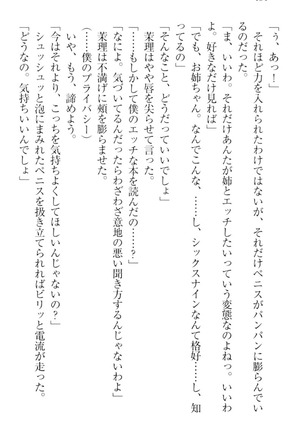 「ぅ、あっ！」
それほど力を入れられたわけではないが、それだけペニスがパンパンに膨らんでい
るのだった。
「ま、いいわ。それだけあんたが姉とエッチしたいっていう変態なのよねっ。いいわ
よ。好きなだけ見れば」
「で、お姉ちゃん。なんでこんな、……し、シックスナインなんて格好……し、知
ってるの」
「そんなこと、どうだっていいでしょ」
茉理はやや唇を尖らせて言った。
「……もしかして僕のエッチな本を読んだの……？」
「なによ。気づいてるんだったらわざわざ意地の悪い聞き方するんじゃないわよ」
茉理は不満げに頬を膨らませた。
（……僕のプライバシー）
いや、もう、諦めよう。
「今はそれより、こっちを気持ちよくしてほしいんじゃないの？」
シュッシュッと泡にまみれたペニスを扱き立てられればビリッと電流が走った。
「どうなの。気持ちいいんでしょ」